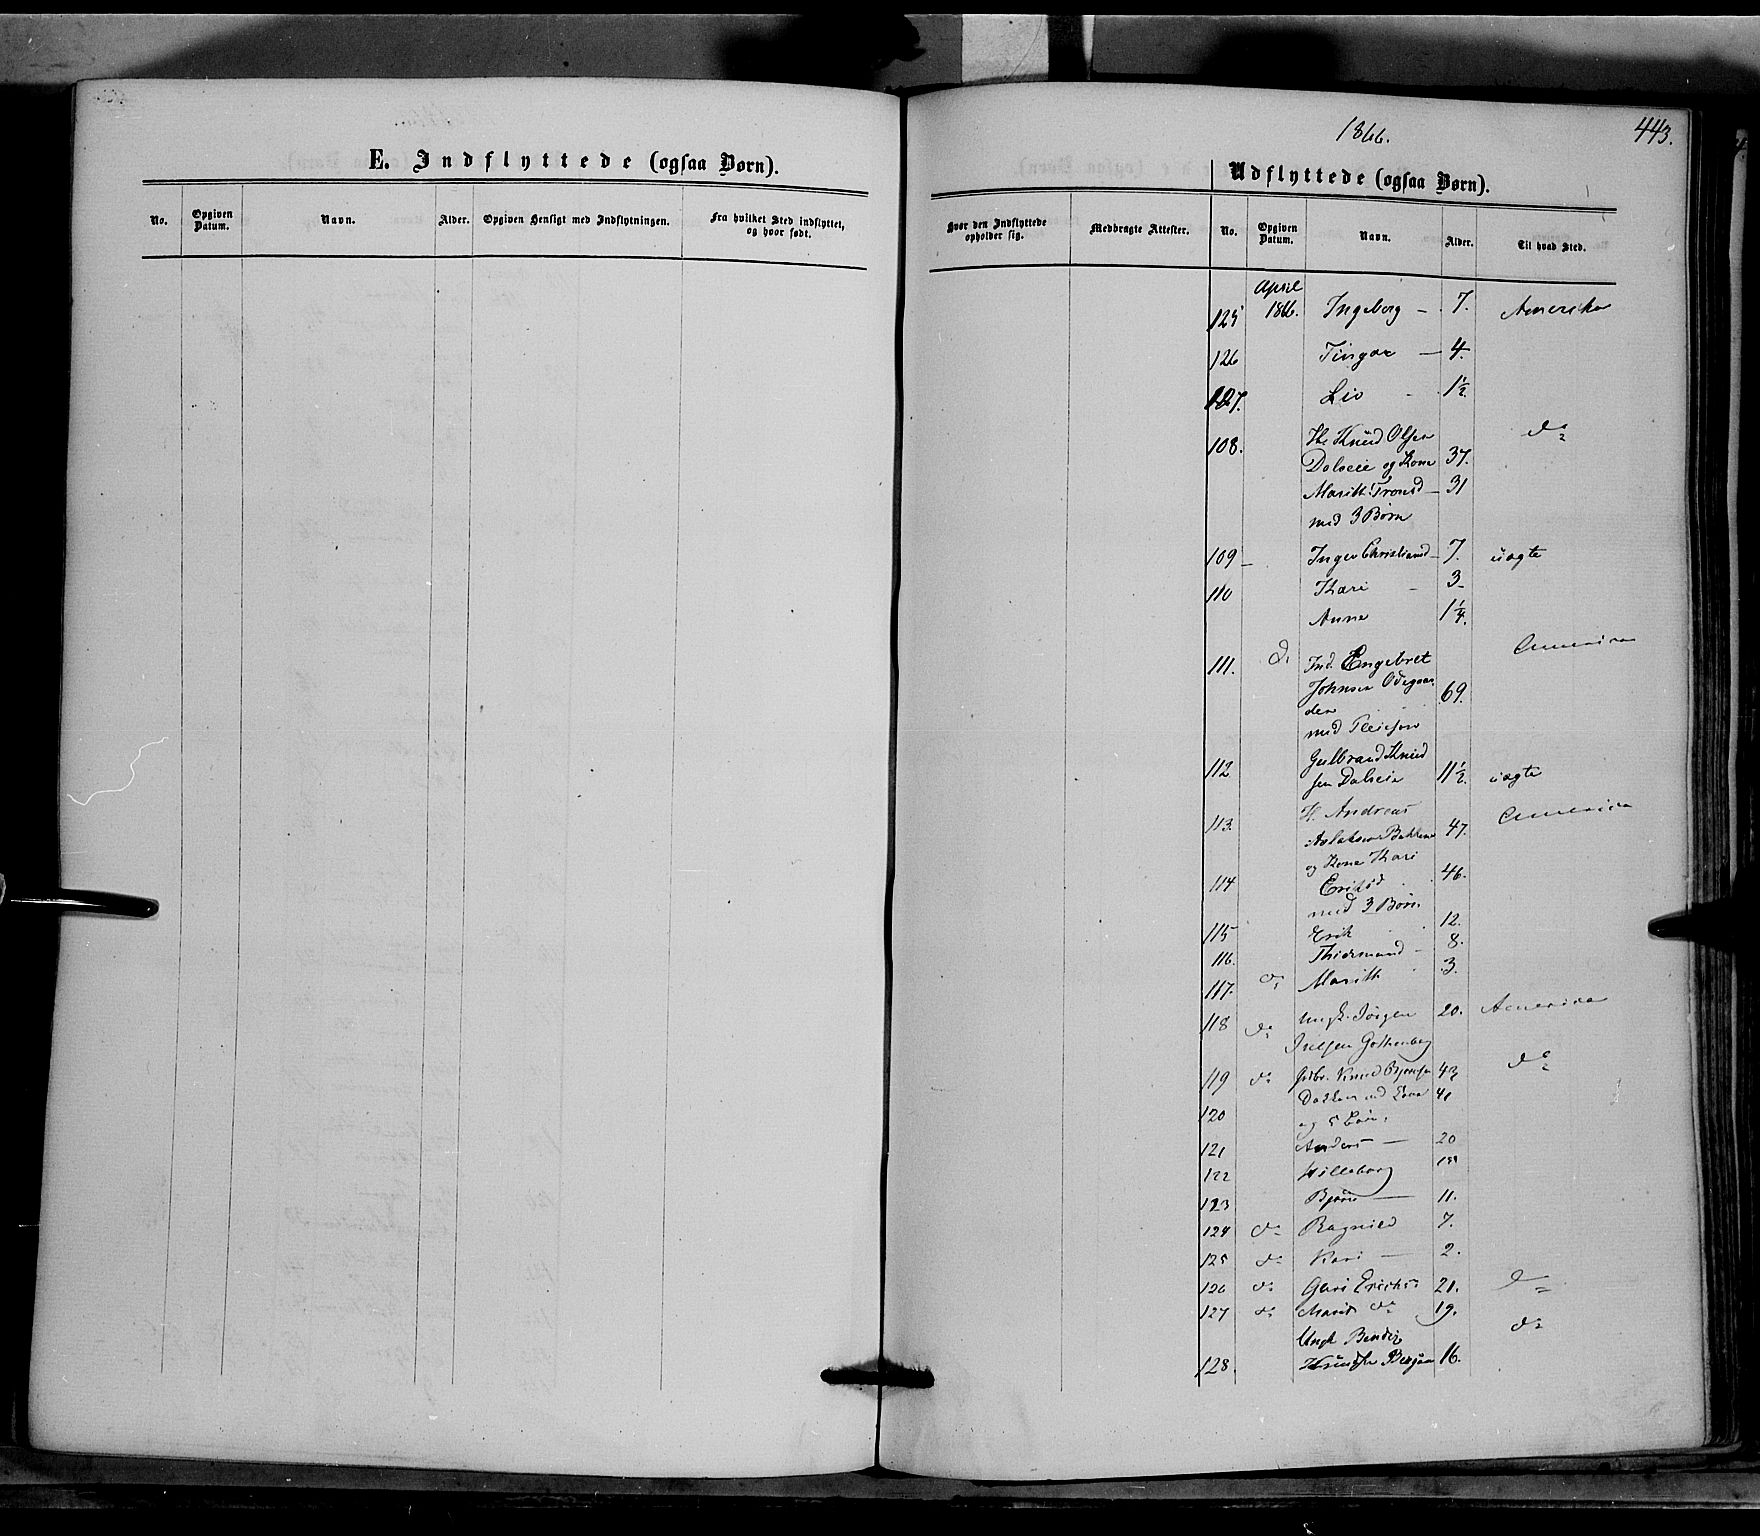 1866.
443.
E. Indflyttede (ogsaa Børn).
Udflyttede (ogsaa Børn).
No. Opgiven Datum. Navn. Alder. Opgiven Hensigt med Indflytningen. Fra hvilket Sted indflyttet, og hvor født.
Hvor den Indflyttede opholder sig. Medbragte Attester. No. Opgiven Datum. Navn. Alder. Til hvad Sted.
April
125 1866. Ingeborg — 7. Amerika
126 — 4.
127. Liv 1½.
108. Knud Olsen do
Dalseie og Kone 37.
Marith Trønd — 31
med 3 Børn
109 — Inger Christiansd — 7.
110 Kari - 3 -
Anne 1¼.
111. d. Ind. Engebret America
Johnsen Ødegaar 69.
den
med Pleiesøn
112 Gulbrand Knud
sen Dalseie 11½.
113. Andreas America
Aslaksen Bakken 47.
og Kone Kari
114 Eriksd 46.
med 3 Børn
115 Erik 12.
116. Thiermund - 8.
117. d. Marith 3.
118 do Ungk. Jørgen 20. America
Gothenborg
119 do Knud Bjørnsen 43 do
Dokken med Kone 41
120 og 5 Børn.
121 Anders — 20
122 Hilleborg
123 Bjørn — 11.
124 do Ragnild 7.
125 do Kari — 2.
126 do Guri Eriksd 21. do
127 do Marit do 19.
Ungk Bendix do
128. 16.